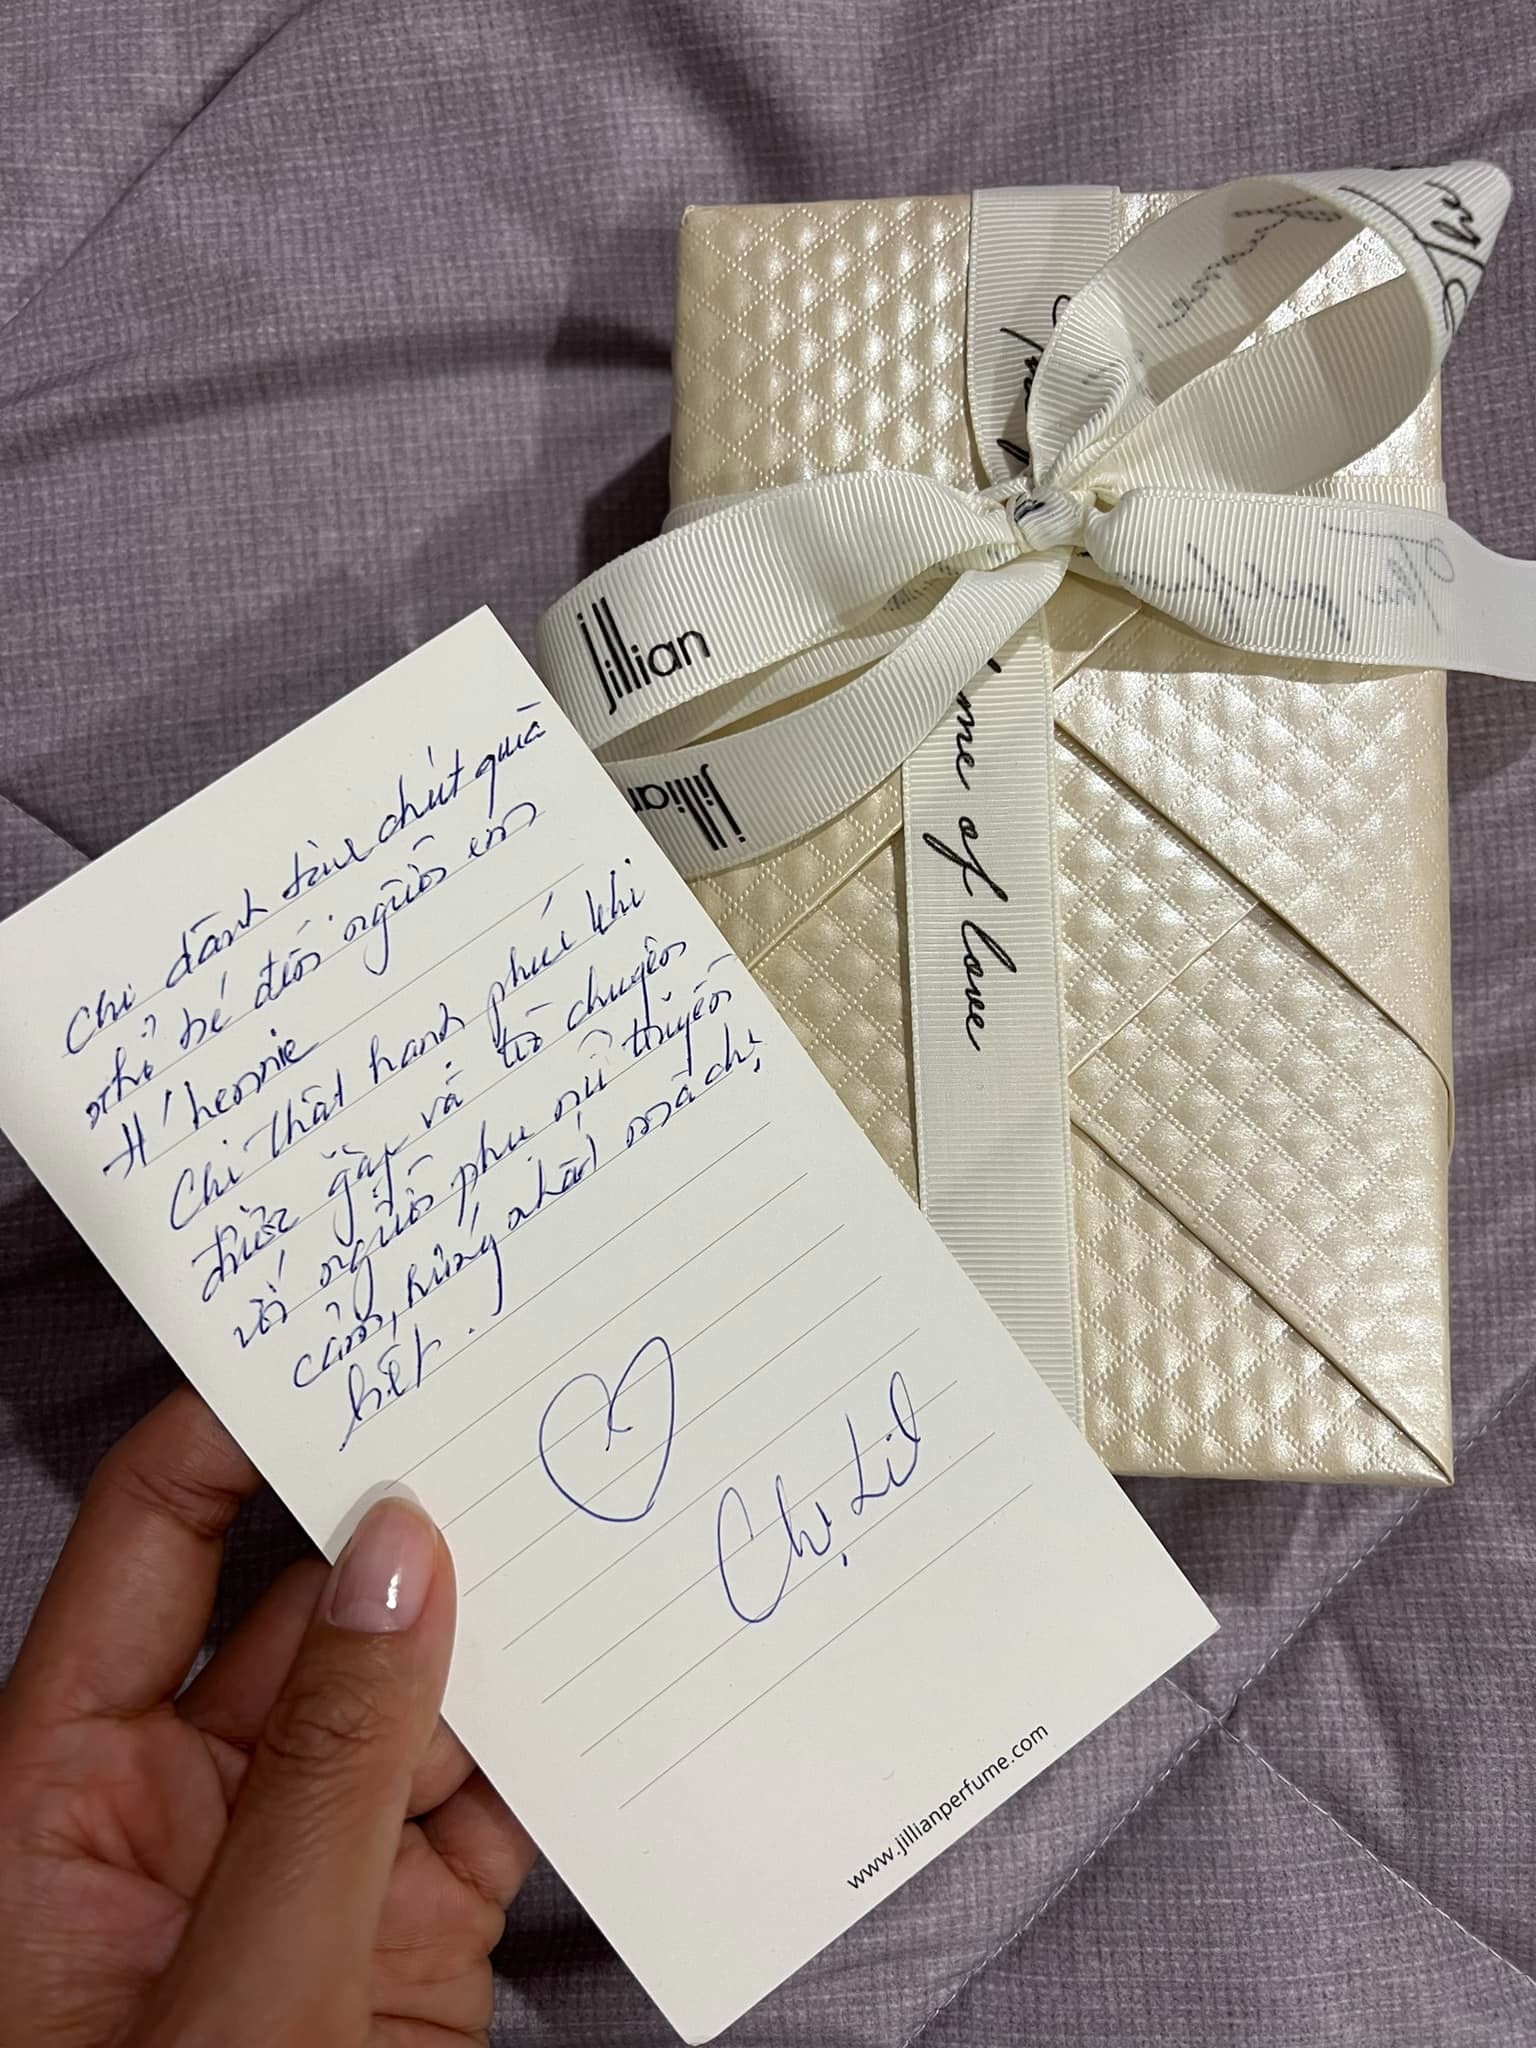 Chị dành tặng chút quà
nhỏ bé đến người em
H'hennie
Chị thật hạnh phúc khi
được gặp và trò chuyện
với người phụ nữ truyền
cảm hứng nhất mà chị
biết.
Chị Lil
www.jillianperfume.com
jillian
jillian
me of love